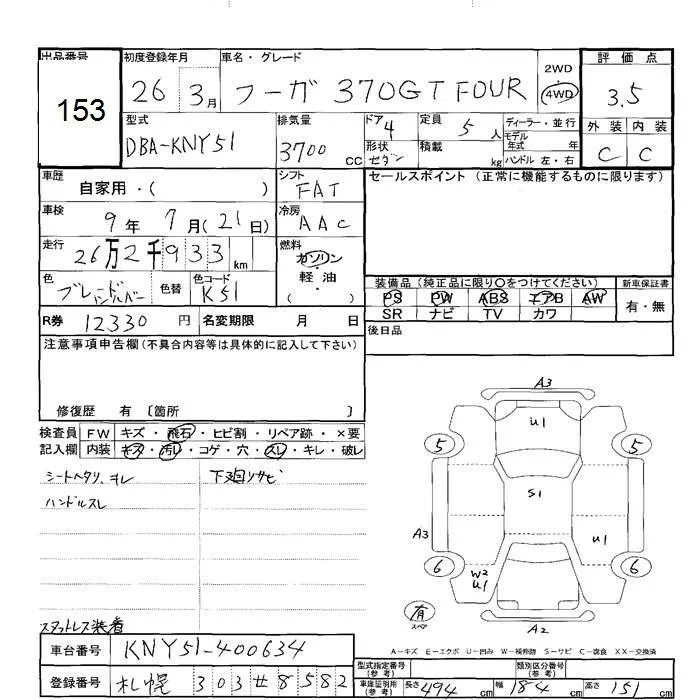 出品番号 153
初度登録年月 26 3月
車名・グレード フーガ 370GT FOUR
2WD 4WD
評価点 3.5
外装 内装
C C
型式 DBA-KNY51
排気量 3700 CC
ドア 4
形状 セダン
定員 5 人
積載 kg
ディーラー・並行
モデル年式 年式
ハンドル 左・右
車歴 自家用・( )
シフト FAT
セールスポイント (正常に機能するものに限ります)
車検 9年 7月(21日)
冷房 AAC
走行 26万2千933km
燃料 ガソリン・軽油・( )
色 色替 色コード K51
装備品(純正品に限り○をつけてください)
新車保証書
PS PW ABS エアB AW
有・無
SR ナビ TV カワ
R券 12330 円 名変期限 月 日
後日品
注意事項申告欄(不具合内容等は具体的に記入して下さい)
修復歴 有 〔箇所 〕
検査員 FW キズ・飛石・ヒビ割・リペア跡・×要
記入欄 内装 キズ・汚レ・コゲ・穴・スレ・キレ・破レ
シートヘタリ、ヨレ
下廻リサビ
ハンドルスレ
A3
U1
5 5
S1
A3
U1
6 6
W2
U1
有
スペア
A2
スタットレス装着
A−キズ E−エクボ U−凹み W−補修跡 S−サビ C−腐食 XX−交換済
車台番号 KNY51-400634
型式指定番号(参考)
類別区分番号(参考)
登録番号 札幌 303 せ 8582
車庫証明用(参考) 長さ 494 cm 幅 184 cm 高さ 151 cm